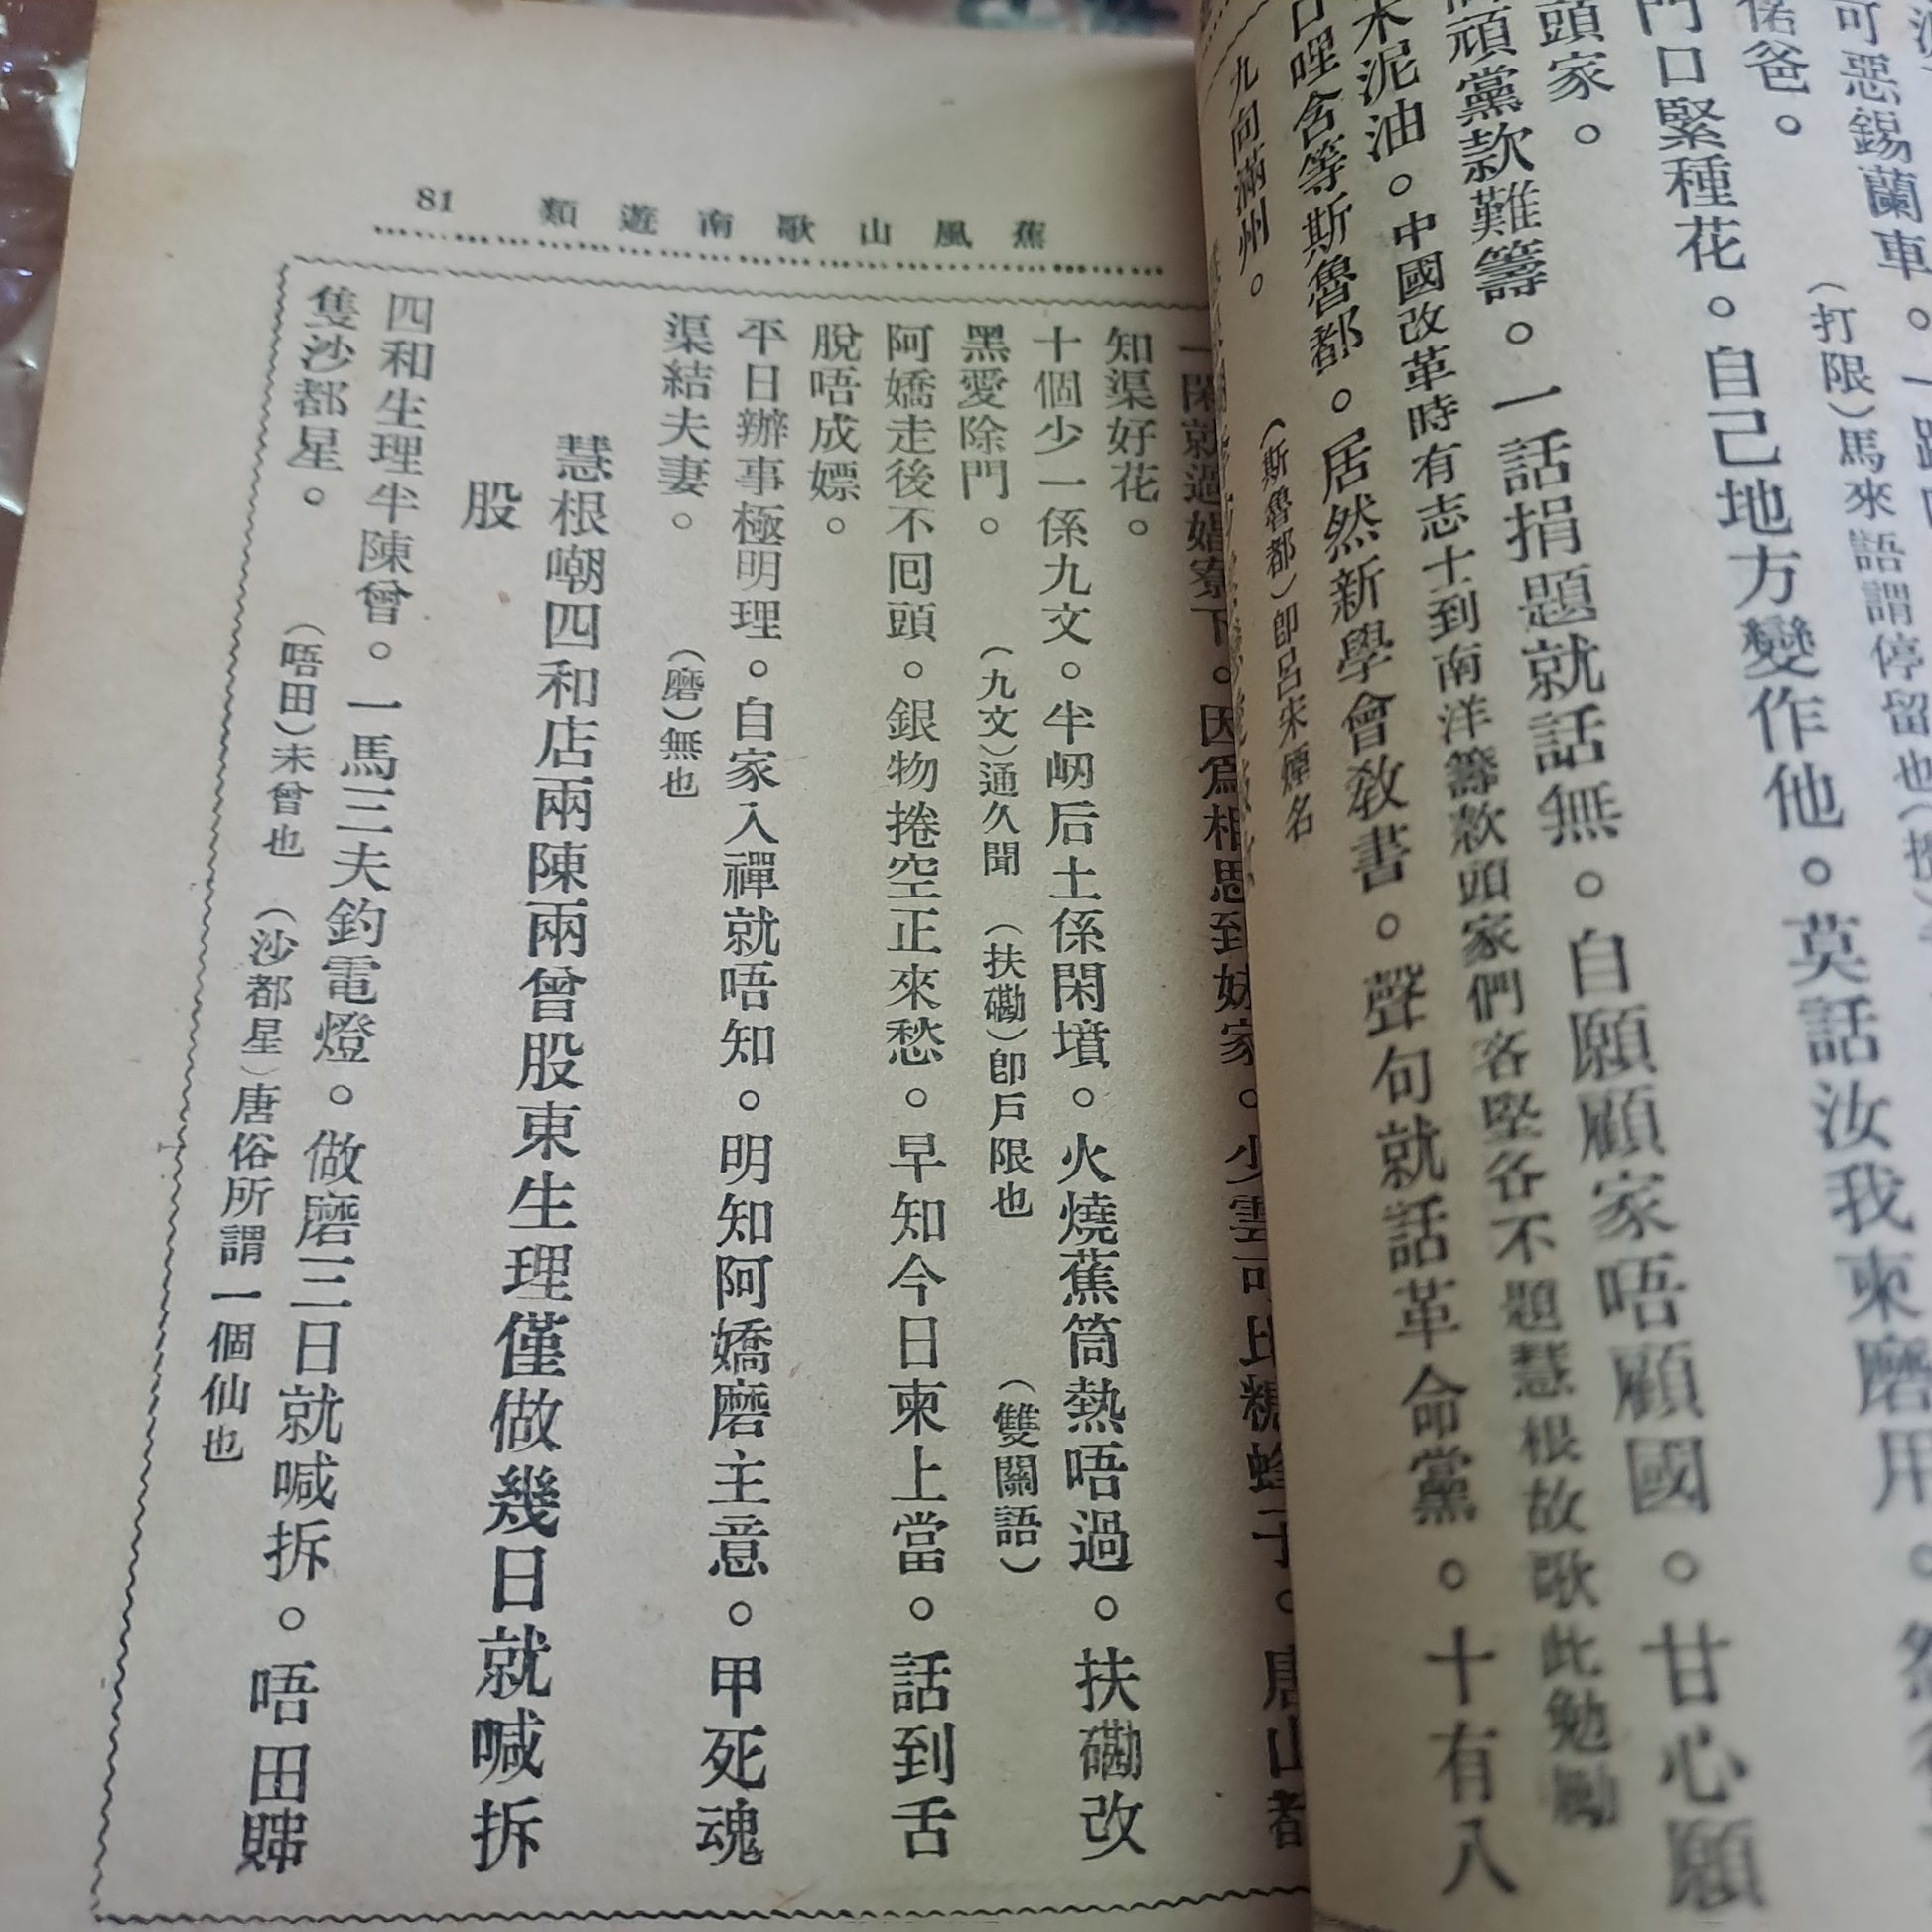 可惡錫蘭車。一
(打限)馬來語謂停留也
爸。
門口緊種花。自己地方變作他。莫話汝我柬磨用。
頭家。
頑黨款難籌。一話捐題就話無。自願顧家唔顧國。甘心願
泥油。中國改革時有志士到南洋籌款頭家們客堅各不題慧根故歌此勉勵
口哩含等斯魯都。居然新學會敎書。聲句就話革命黨。十有八
(斯魯都)卽呂宋煙名
九向滿州。
蕉風山歌南遊類 81
一閑就過娼寮下。因爲相思到妹家。少雲可比糖蜂子。唐山都
知渠好花。
十個少一係九文。半岃后土係閑墳。火燒蕉筒熱唔過。扶磡改
(九文)通久聞 (扶磡)卽戶限也 (雙關語)
黑愛除門。
阿嬌走後不囘頭。銀物捲空正來愁。早知今日柬上當。話到舌
脫唔成嫖。
平日辦事極明理。自家入禪就唔知。明知阿嬌磨主意。甲死魂
(磨)無也
渠結夫妻。
慧根嘲四和店兩陳兩曾股東生理僅做幾日就喊拆
股
四和生理半陳曾。一馬三夫釣電燈。做磨三日就喊拆。唔田睇
(唔田)未曾也 (沙都星)唐俗所謂一個仙也
隻沙都星。